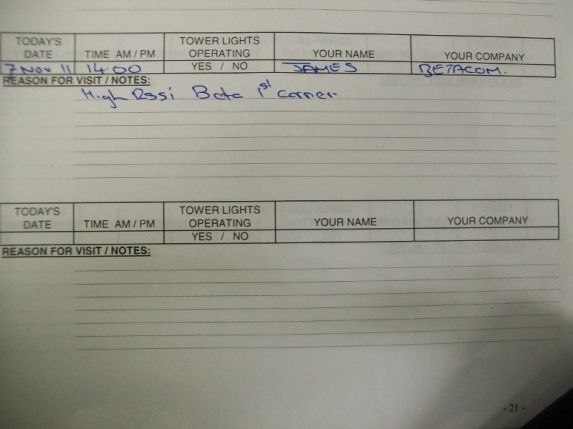 TODAY'S DATE TIME AM / PM TOWER LIGHTS OPERATING YOUR NAME YOUR COMPANY
7 Nov 11 14:00 YES / NO JAMES BETACOM.
REASON FOR VISIT / NOTES:
High Rssi Beta 1st carrier
TODAY'S DATE TIME AM / PM TOWER LIGHTS OPERATING YOUR NAME YOUR COMPANY
YES / NO
REASON FOR VISIT / NOTES:
- 21 -